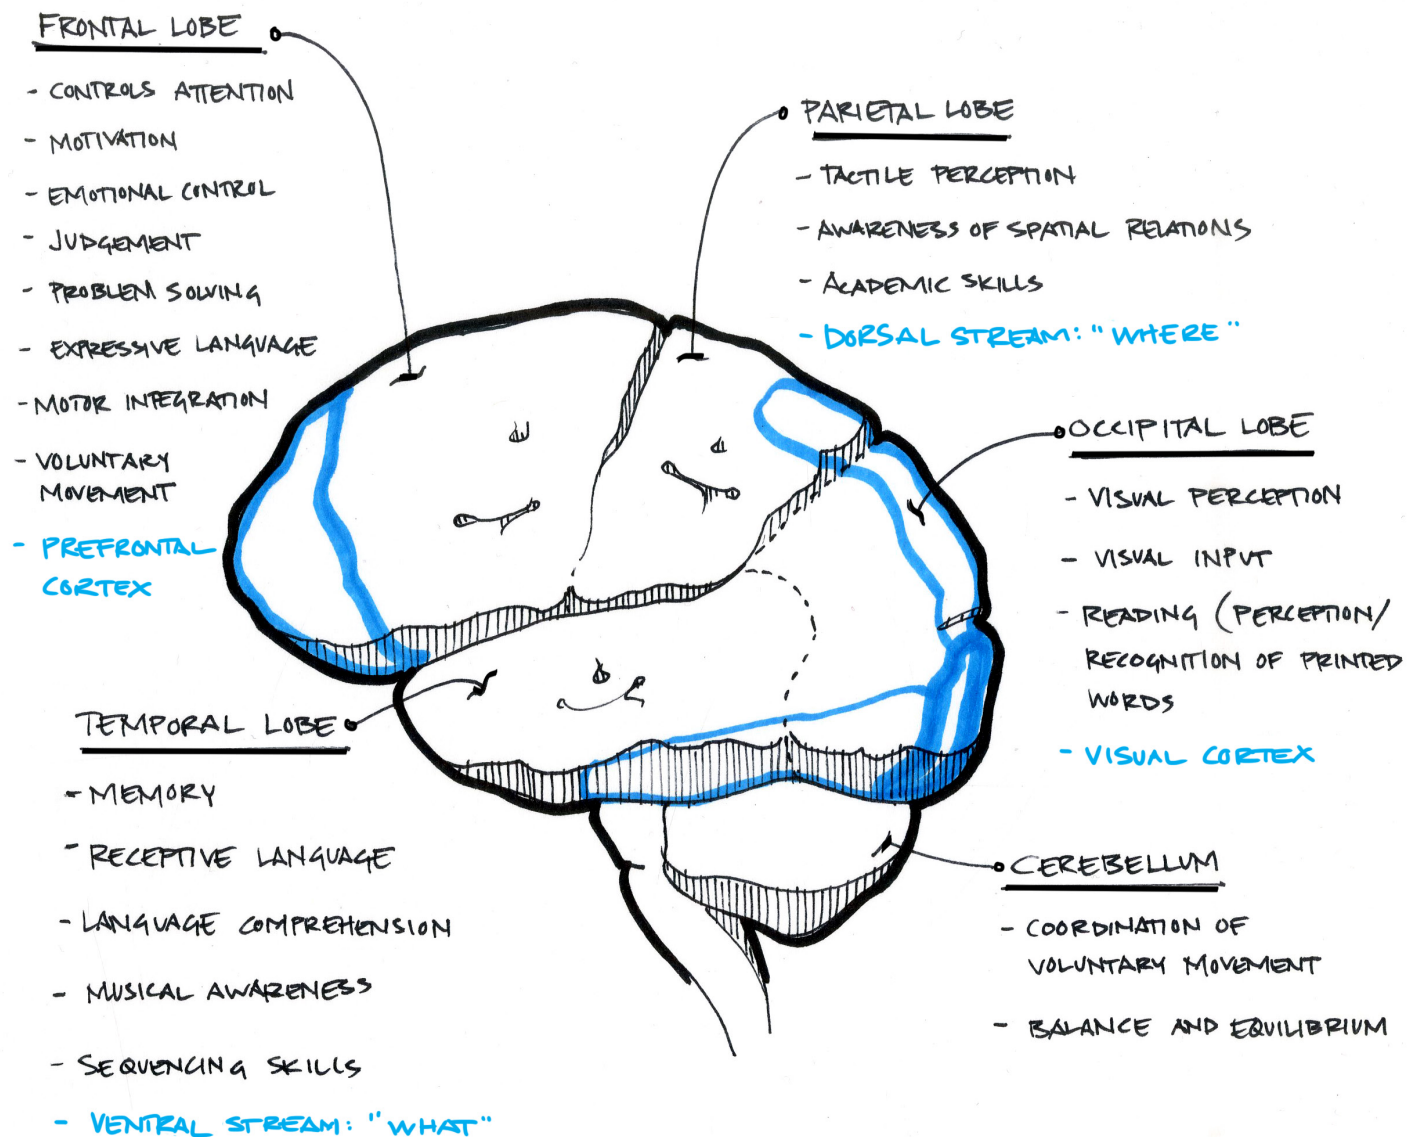 FRONTAL LOBE
- CONTROLS ATTENTION
- MOTIVATION
- EMOTIONAL CONTROL
- JUDGEMENT
- PROBLEM SOLVING
- EXPRESSIVE LANGUAGE
- MOTOR INTEGRATION
- VOLUNTARY
MOVEMENT
- PREFRONTAL
CORTEX
PARIETAL LOBE
- TACTILE PERCEPTION
- AWARENESS OF SPATIAL RELATIONS
- ACADEMIC SKILLS
- DORSAL STREAM: "WHERE"
OCCIPITAL LOBE
- VISUAL PERCEPTION
- VISUAL INPUT
- READING (PERCEPTION/
RECOGNITION OF PRINTED
WORDS
- VISUAL CORTEX
TEMPORAL LOBE
- MEMORY
- RECEPTIVE LANGUAGE
- LANGUAGE COMPREHENSION
- MUSICAL AWARENESS
- SEQUENCING SKILLS
- VENTRAL STREAM: "WHAT"
CEREBELLUM
- COORDINATION OF
VOLUNTARY MOVEMENT
- BALANCE AND EQUILIBRIUM